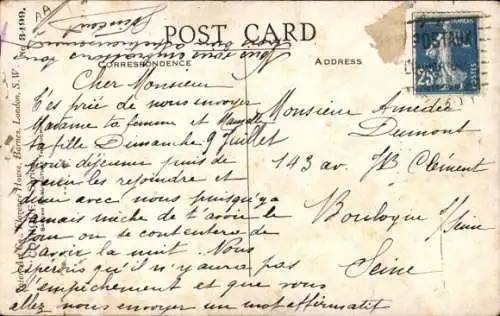 POST CARD
CORRESPONDENCE
ADDRESS
POSTAUX
25
Cher Monsieur
prié de nous envoyer
Madame ta femme et
ta fille Dimanche 9 Juillet
pour déjeuner puis de
venir les rejoindre et
avec nous puisqu'ya
jamais de t'avoir le
jour on se contentera de
t'avoir la nuit. Nous
espérons qu'il n'y aura pas
d'empêchement et que vous
allez nous envoyer un mot affirmatif
Monsieur Amédée
Dumont
143 av. JB Clément
Boulogne s/Seine
Seine
House, Barnes, London, S.W.